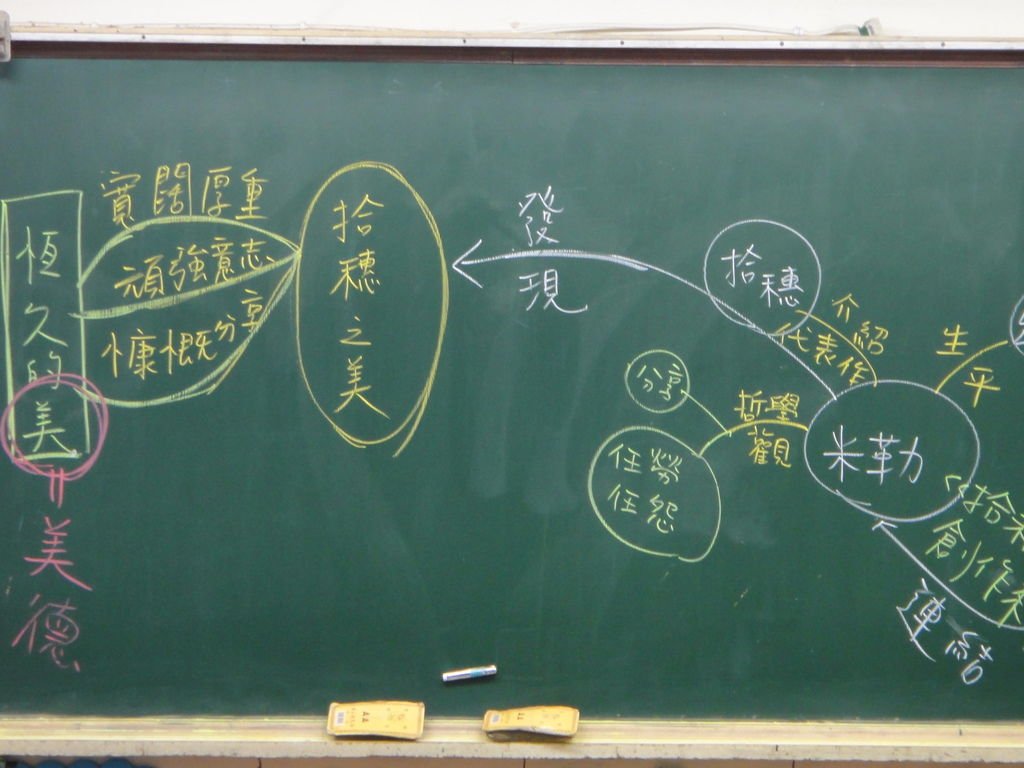 恆久的美
=美德
寬闊厚重
頑強意志
慷慨分享
拾穗之美
發現
拾穗
介紹
代表作
生平
分享
哲學觀
任勞
任怨
米勒
《拾
創作
連結